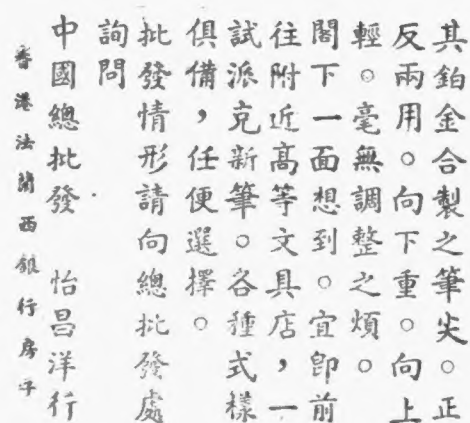 其鉑金合製之筆尖。正
反兩用。向下重。向上
輕。毫無調整之煩。
閣下一面想到。宜即前
往附近高等文具店，一
試派克新筆。各種式樣
俱備，任便選擇。
批發情形請向總批發處
詢問
中國總批發 怡昌洋行
香港法蘭西銀行房子